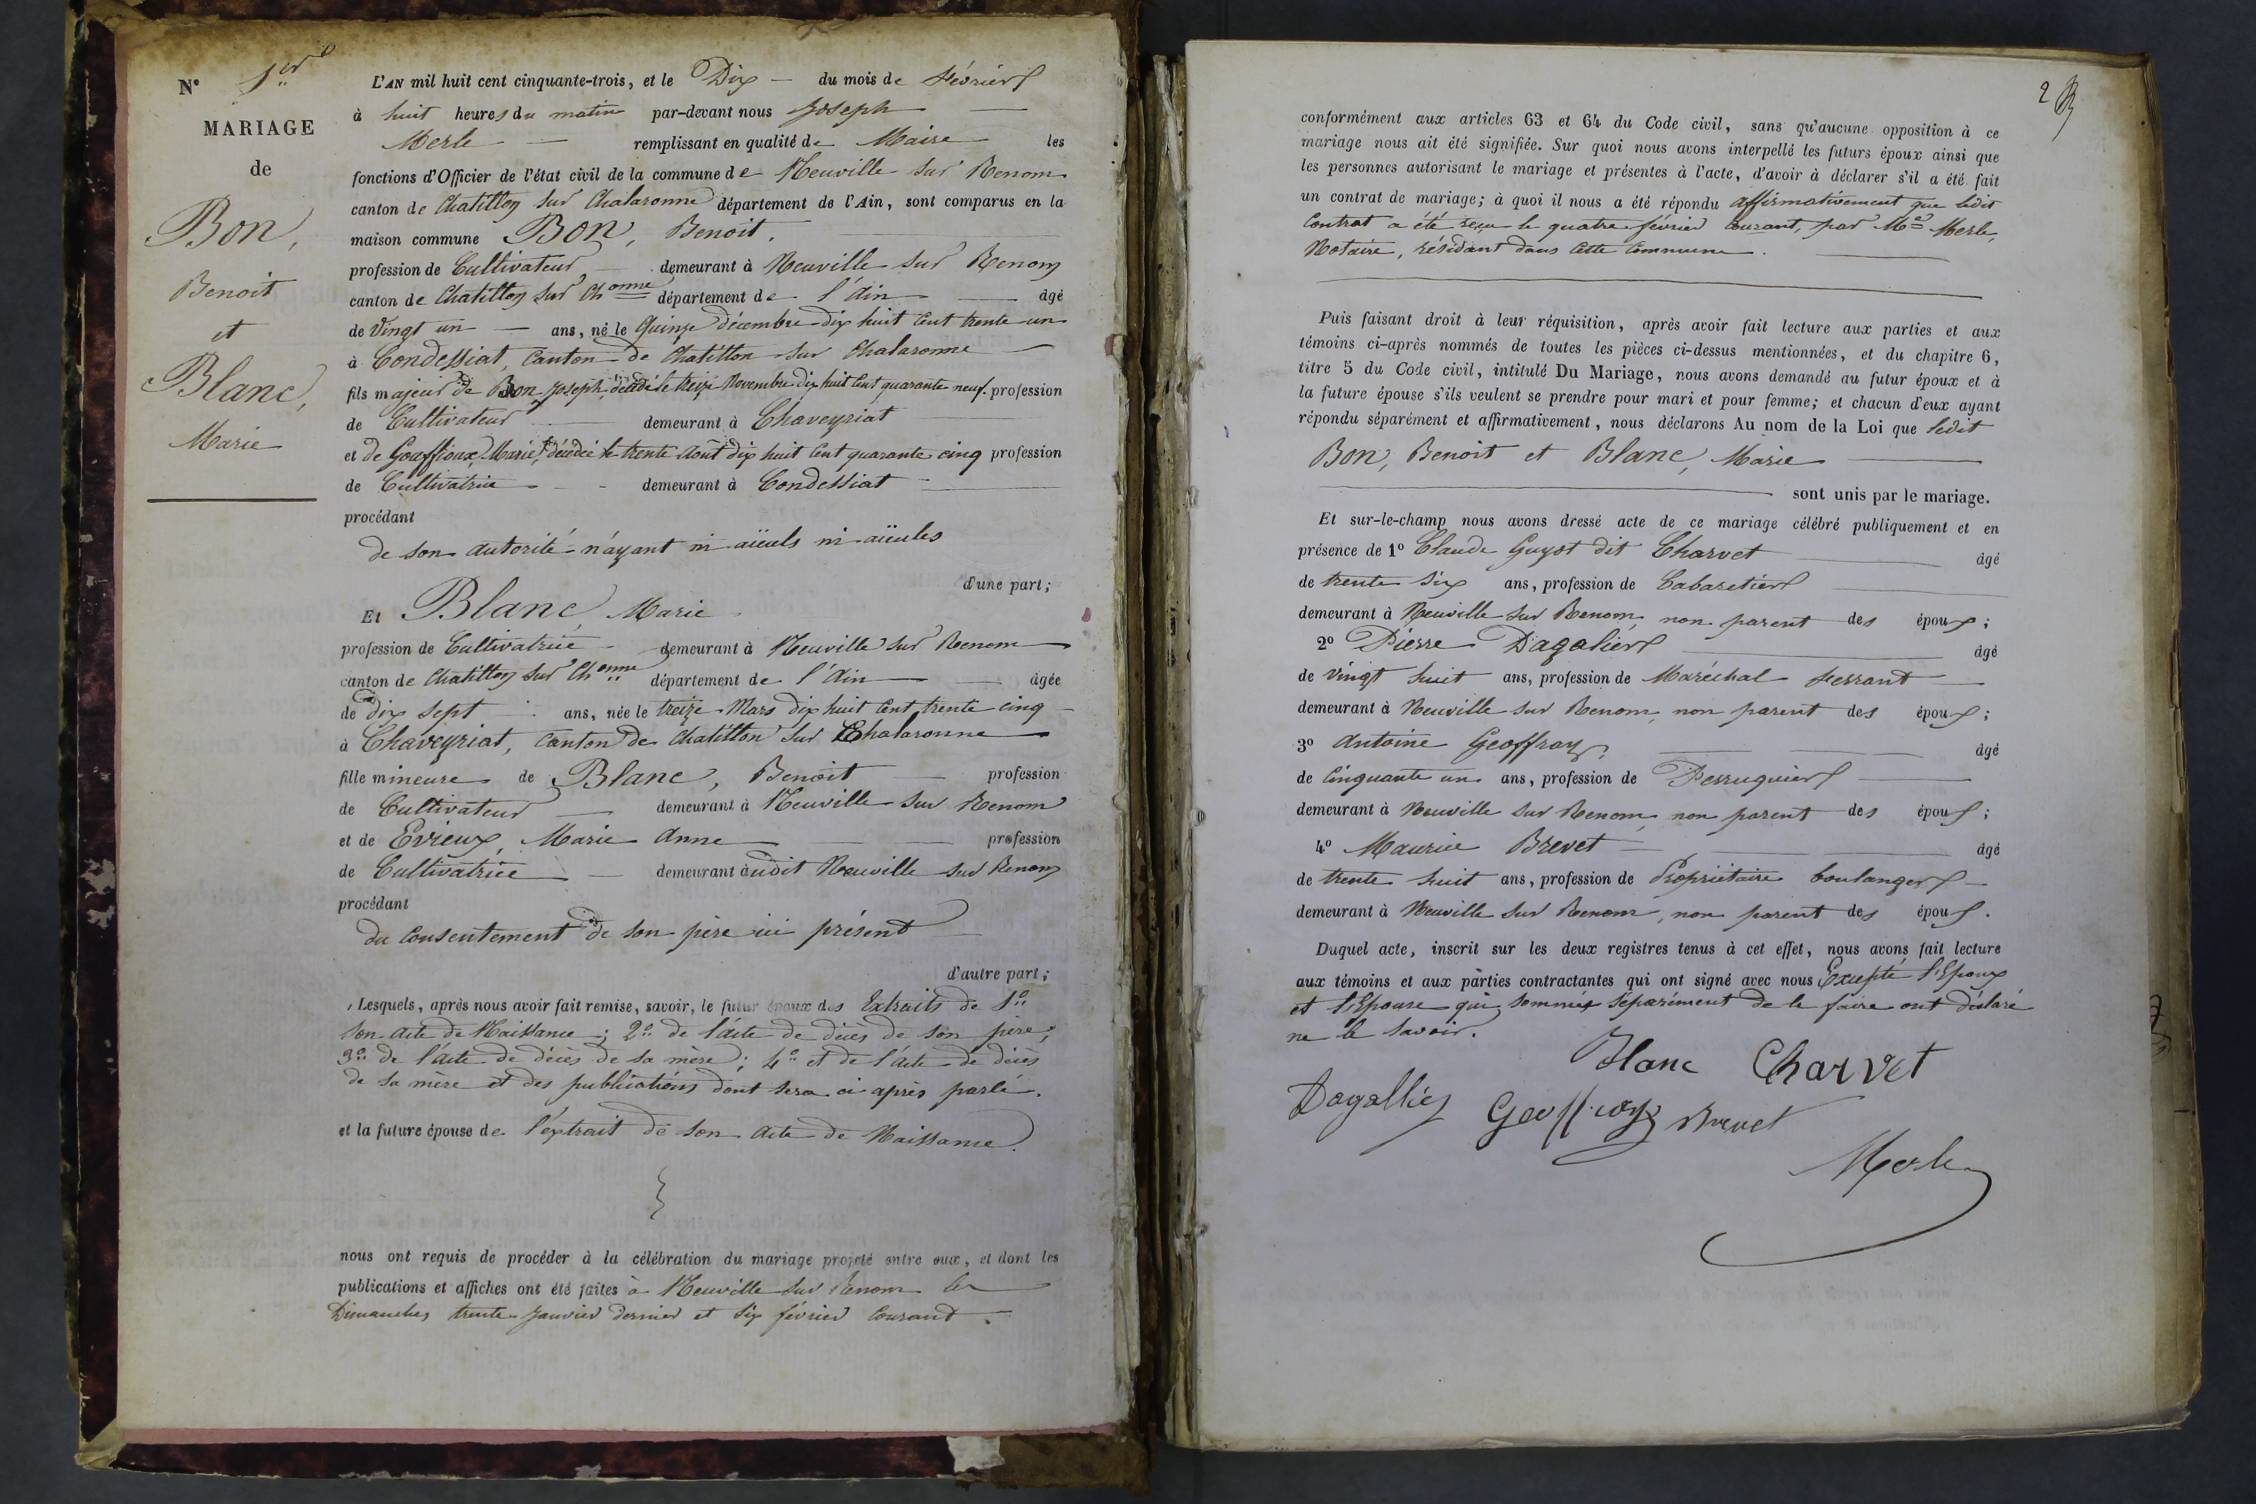 N° 1er
MARIAGE
de
Bon,
Benoit
et
Blanc,
Marie
L'AN mil huit cent cinquante-trois, et le Dix — du mois de Février
à huit heures du matin par-devant nous Joseph —
Merle — remplissant en qualité de Maire les
fonctions d'Officier de l'état civil de la commune de Neuville sur Renom
canton de Chatillon sur Chalaronne département de l'Ain, sont comparus en la
maison commune Bon, Benoit.
profession de Cultivateur — demeurant à Neuville sur Renom
canton de Chatillon sur Chonne département de l'Ain — âgé
de Vingt un — ans, né le Quinze décembre dix huit Cent trente un
à Condessiat, Canton de Chatillon sur Chalaronne —
fils majeur de Bon Joseph décédé le treize Novembre dix huit Cent quarante neuf. profession
de Cultivateur — demeurant à Chaveyriat
et de Gouffioux Marie, décédée le trente Août dix huit Cent quarante cinq profession
de Cultivatrice - - demeurant à Condessiat —
procédant
de son autorité n'ayant ni aïeuls ni aïeules
d'une part;
Et Blanc, Marie
profession de Cultivatrice - demeurant à Neuville sur Renom
canton de Chatillon sur Chonne département de l'Ain — âgée
de Dix sept — ans, née le treize Mars dix huit Cent trente cinq
à Chaveyriat, Canton de Chatillon sur Chalaronne
fille mineure de Blanc, Benoit — profession
de Cultivateur — demeurant à Neuville sur Renom
et de Evieux, Marie Anne — profession
de Cultivatrice — demeurant audit Neuville sur Renom
procédant
du consentement de son père ici présent
d'autre part;
Lesquels, après nous avoir fait remise, savoir, le futur époux des Extraits de 1°
Son Acte de Naissance; 2° de l'acte de décès de son père;
3° de l'acte de décès de sa mère; 4° et de l'acte de décès
de sa mère et des publications dont sera ci après parlé.
et la future épouse de l'extrait de son Acte de Naissance.
nous ont requis de procéder à la célébration du mariage projeté entre eux, et dont les
publications et affiches ont été faites à Neuville sur Renom les
Dimanches trente Janvier dernier et six février Courant.
2
conformément aux articles 63 et 64 du Code civil, sans qu'aucune opposition à ce
mariage nous ait été signifiée. Sur quoi nous avons interpellé les futurs époux ainsi que
les personnes autorisant le mariage et présentes à l'acte, d'avoir à déclarer s'il a été fait
un contrat de mariage; à quoi il nous a été répondu affirmativement que ledit
Contrat a été reçu le quatre février courant, par Me Merle,
Notaire, résidant dans cette Commune.
Puis faisant droit à leur réquisition, après avoir fait lecture aux parties et aux
témoins ci-après nommés de toutes les pièces ci-dessus mentionnées, et du chapitre 6,
titre 5 du Code civil, intitulé Du Mariage, nous avons demandé au futur époux et à
la future épouse s'ils veulent se prendre pour mari et pour femme; et chacun d'eux ayant
répondu séparément et affirmativement, nous déclarons Au nom de la Loi que ledit
Bon, Benoit et Blanc, Marie —
sont unis par le mariage.
Et sur-le-champ nous avons dressé acte de ce mariage célébré publiquement et en
présence de 1° Claude Guyot dit Charvet — âgé
de trente six ans, profession de Cabaretier
demeurant à Neuville sur Renom, non parent des époux;
2° Pierre Dagalier — âgé
de Vingt huit ans, profession de Maréchal ferrant
demeurant à Neuville sur Renom, non parent des époux;
3° Antoine Geoffray, — âgé
de Cinquante un ans, profession de Perruquier
demeurant à Neuville sur Renom, non parent des époux;
4° Maurice Brevet — âgé
de trente huit ans, profession de Propriétaire boulanger
demeurant à Neuville sur Renom, non parent des époux.
Duquel acte, inscrit sur les deux registres tenus à cet effet, nous avons fait lecture
aux témoins et aux parties contractantes qui ont signé avec nous Excepté l'Epoux
et l'Epouse qui, sommés séparément de le faire ont déclaré
ne le savoir.
Blanc Charvet
Dagallier Geoffray Brevet
Merle